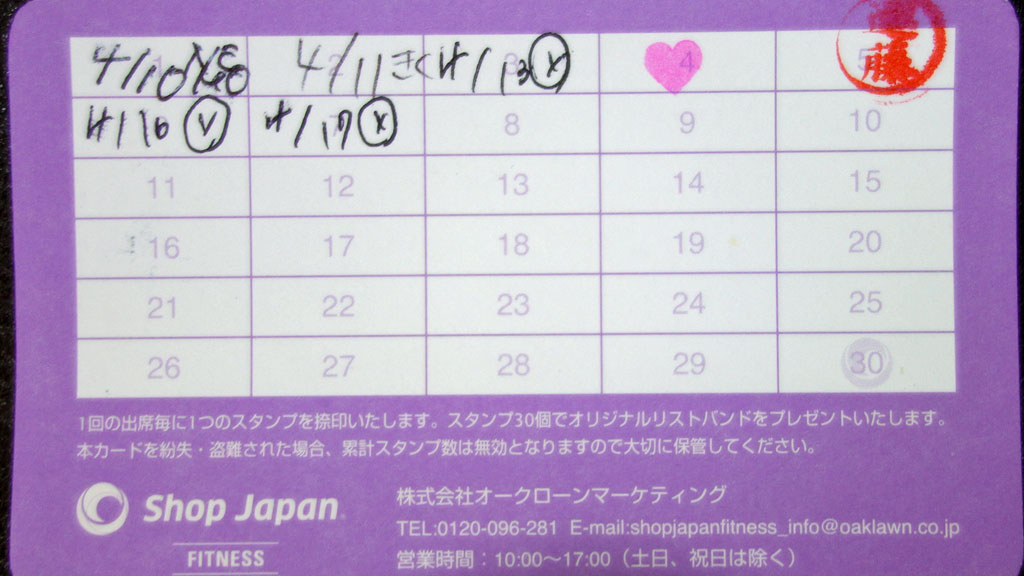 4/10 4/11 きく 4/13 4 5
4/16 4/17 8 9 10
11 12 13 14 15
16 17 18 19 20
21 22 23 24 25
26 27 28 29 30
1回の出席毎に1つのスタンプを捺印いたします。スタンプ30個でオリジナルリストバンドをプレゼントいたします。
本カードを紛失・盗難された場合、累計スタンプ数は無効となりますので大切に保管してください。
Shop Japan
FITNESS
株式会社オークローンマーケティング
TEL:0120-096-281 E-mail:shopjapanfitness_info@oaklawn.co.jp
営業時間：10:00～17:00（土日、祝日は除く）